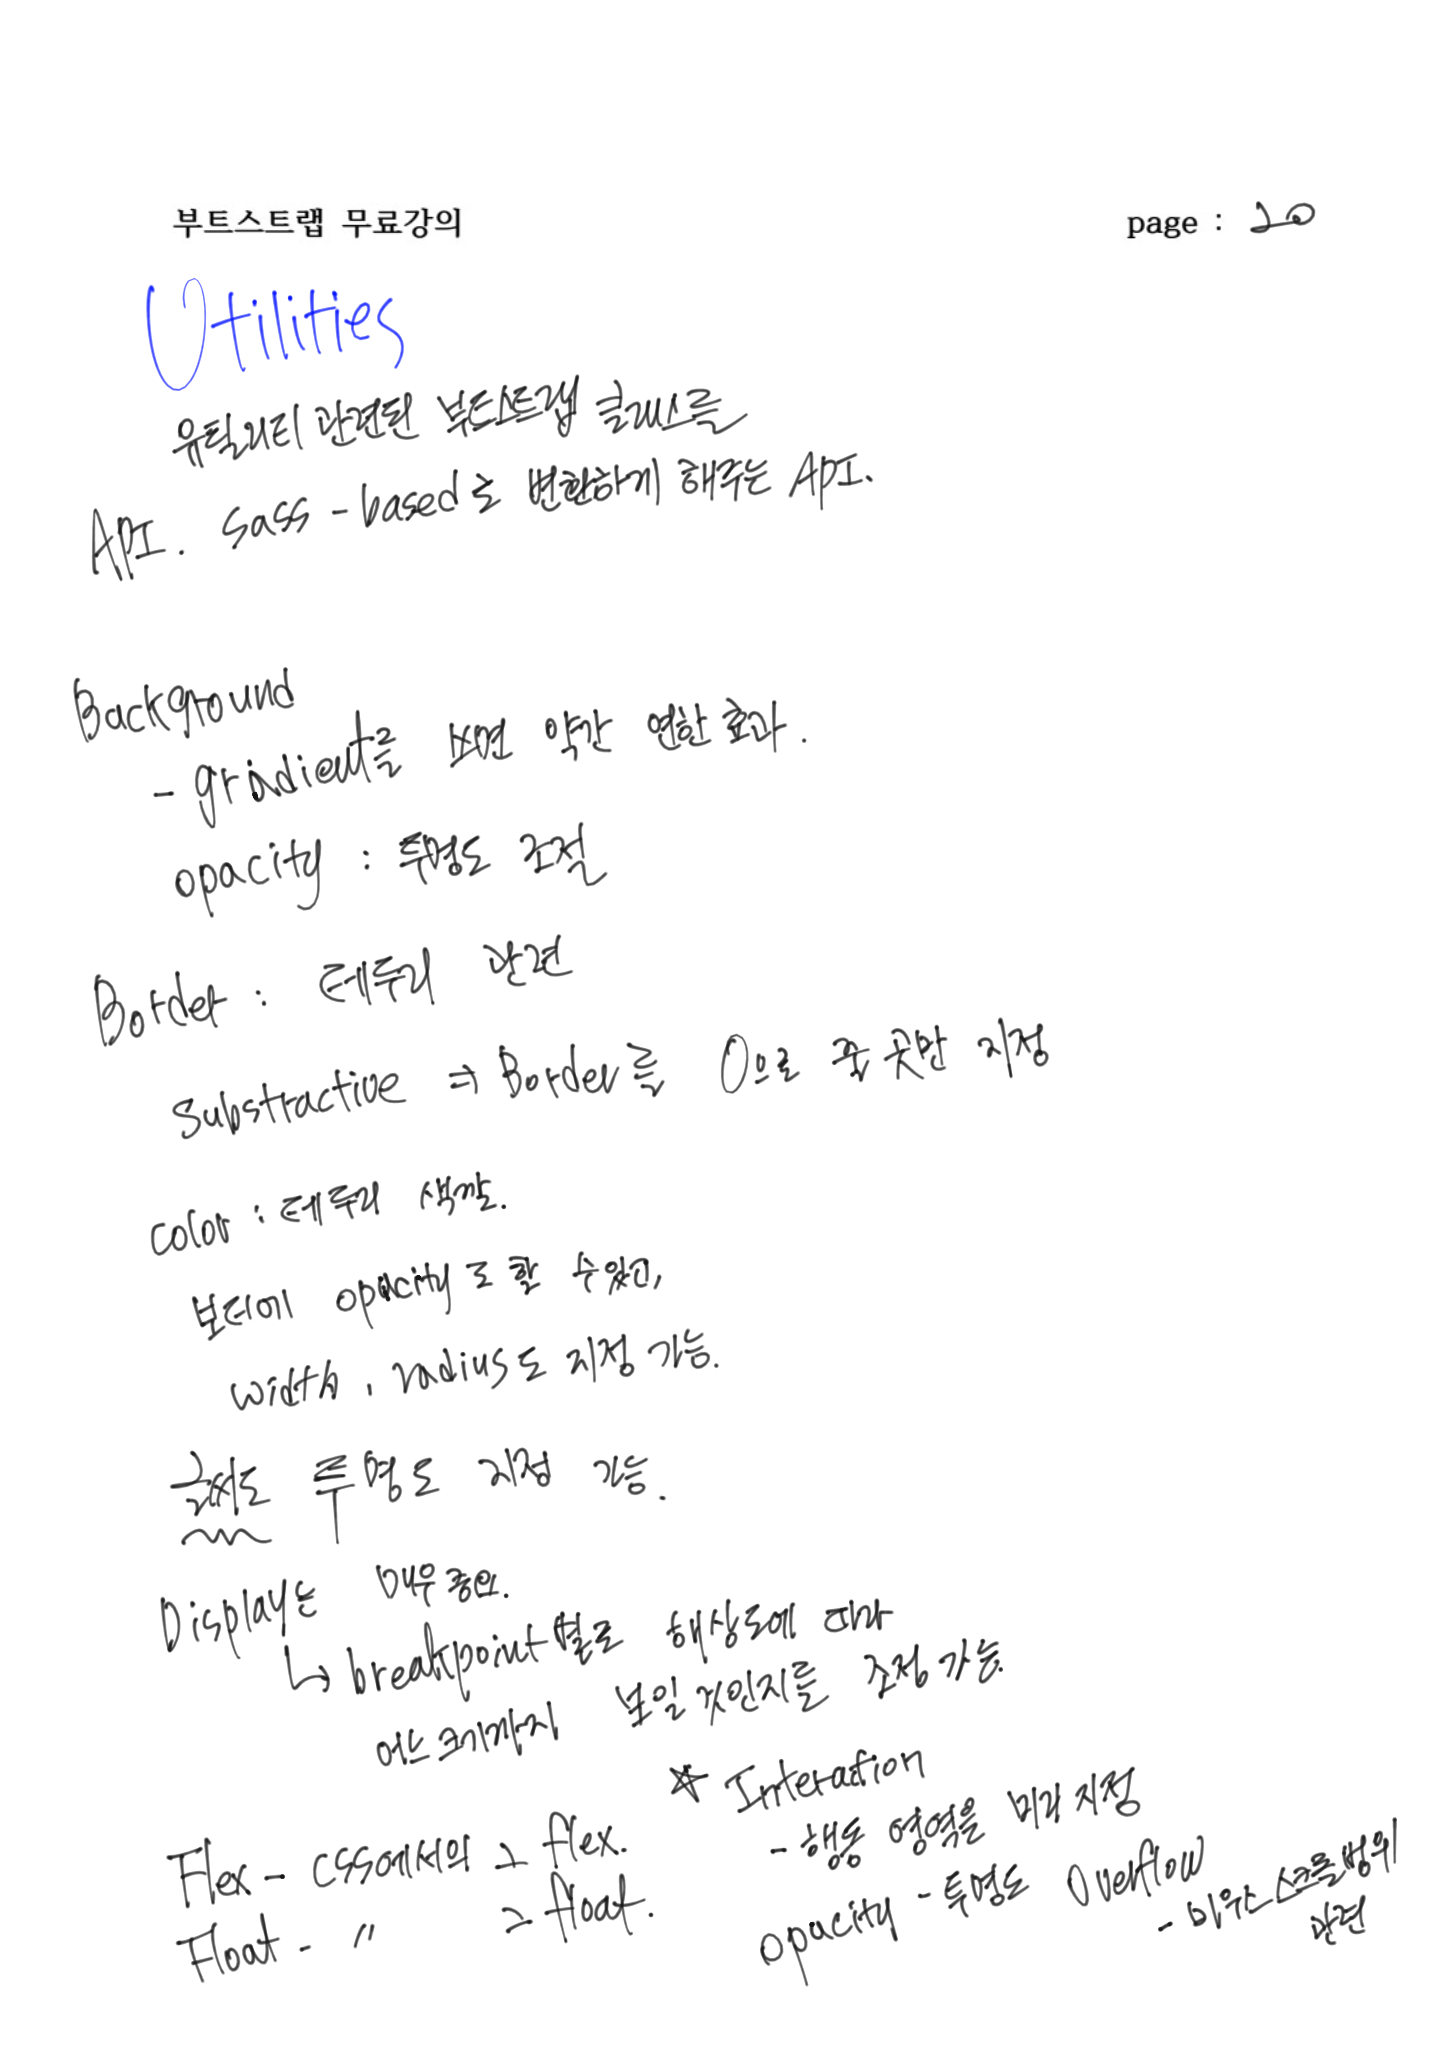 부트스트랩 무료강의
page : 20
Utilities
유틸리티 관련된 부트스트랩 클래스를
API. sass-based로 변환하게 해주는 API.
Background
- gradient를 쓰면 약간 연한 효과.
opacity : 투명도 조절
Border : 테두리 관련
substractive ⇒ Border를 0으로 줄 곳만 지정
color : 테두리 색깔.
보더에 opacity도 할 수 있고,
width, radius도 지정 가능.
글씨도 투명도 지정 가능.
Display는 매우 중요.
↳ breakpoint별로 해상도에 따라
어느크기까지 보일 것인지를 조정 가능
Flex - CSS에서의 그 flex.
Float - 〃 그 float.
☆ Interaction
- 행동 영역을 미리 지정
opacity - 투명도
Overflow
- 마우스 스크롤 범위
관련